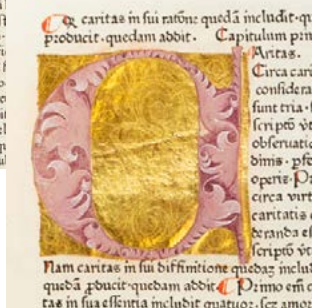 C Q caritas in sui ratõne quedã includit· qu
producit · quedam addit. Capitulum prim
Caritas.
Circa cari
considera
sunt tria · s
scripto vt
obseruatio
dinis · pfe
operis· Pr
circa virt
caritatis c
deranda es
scripto vt
Nam caritas in sui diffinitione quedaz includ
quedã ꝓducit· quedam addit C Primo em̄ c
tas in sua essentia includit quatuor· scz amor